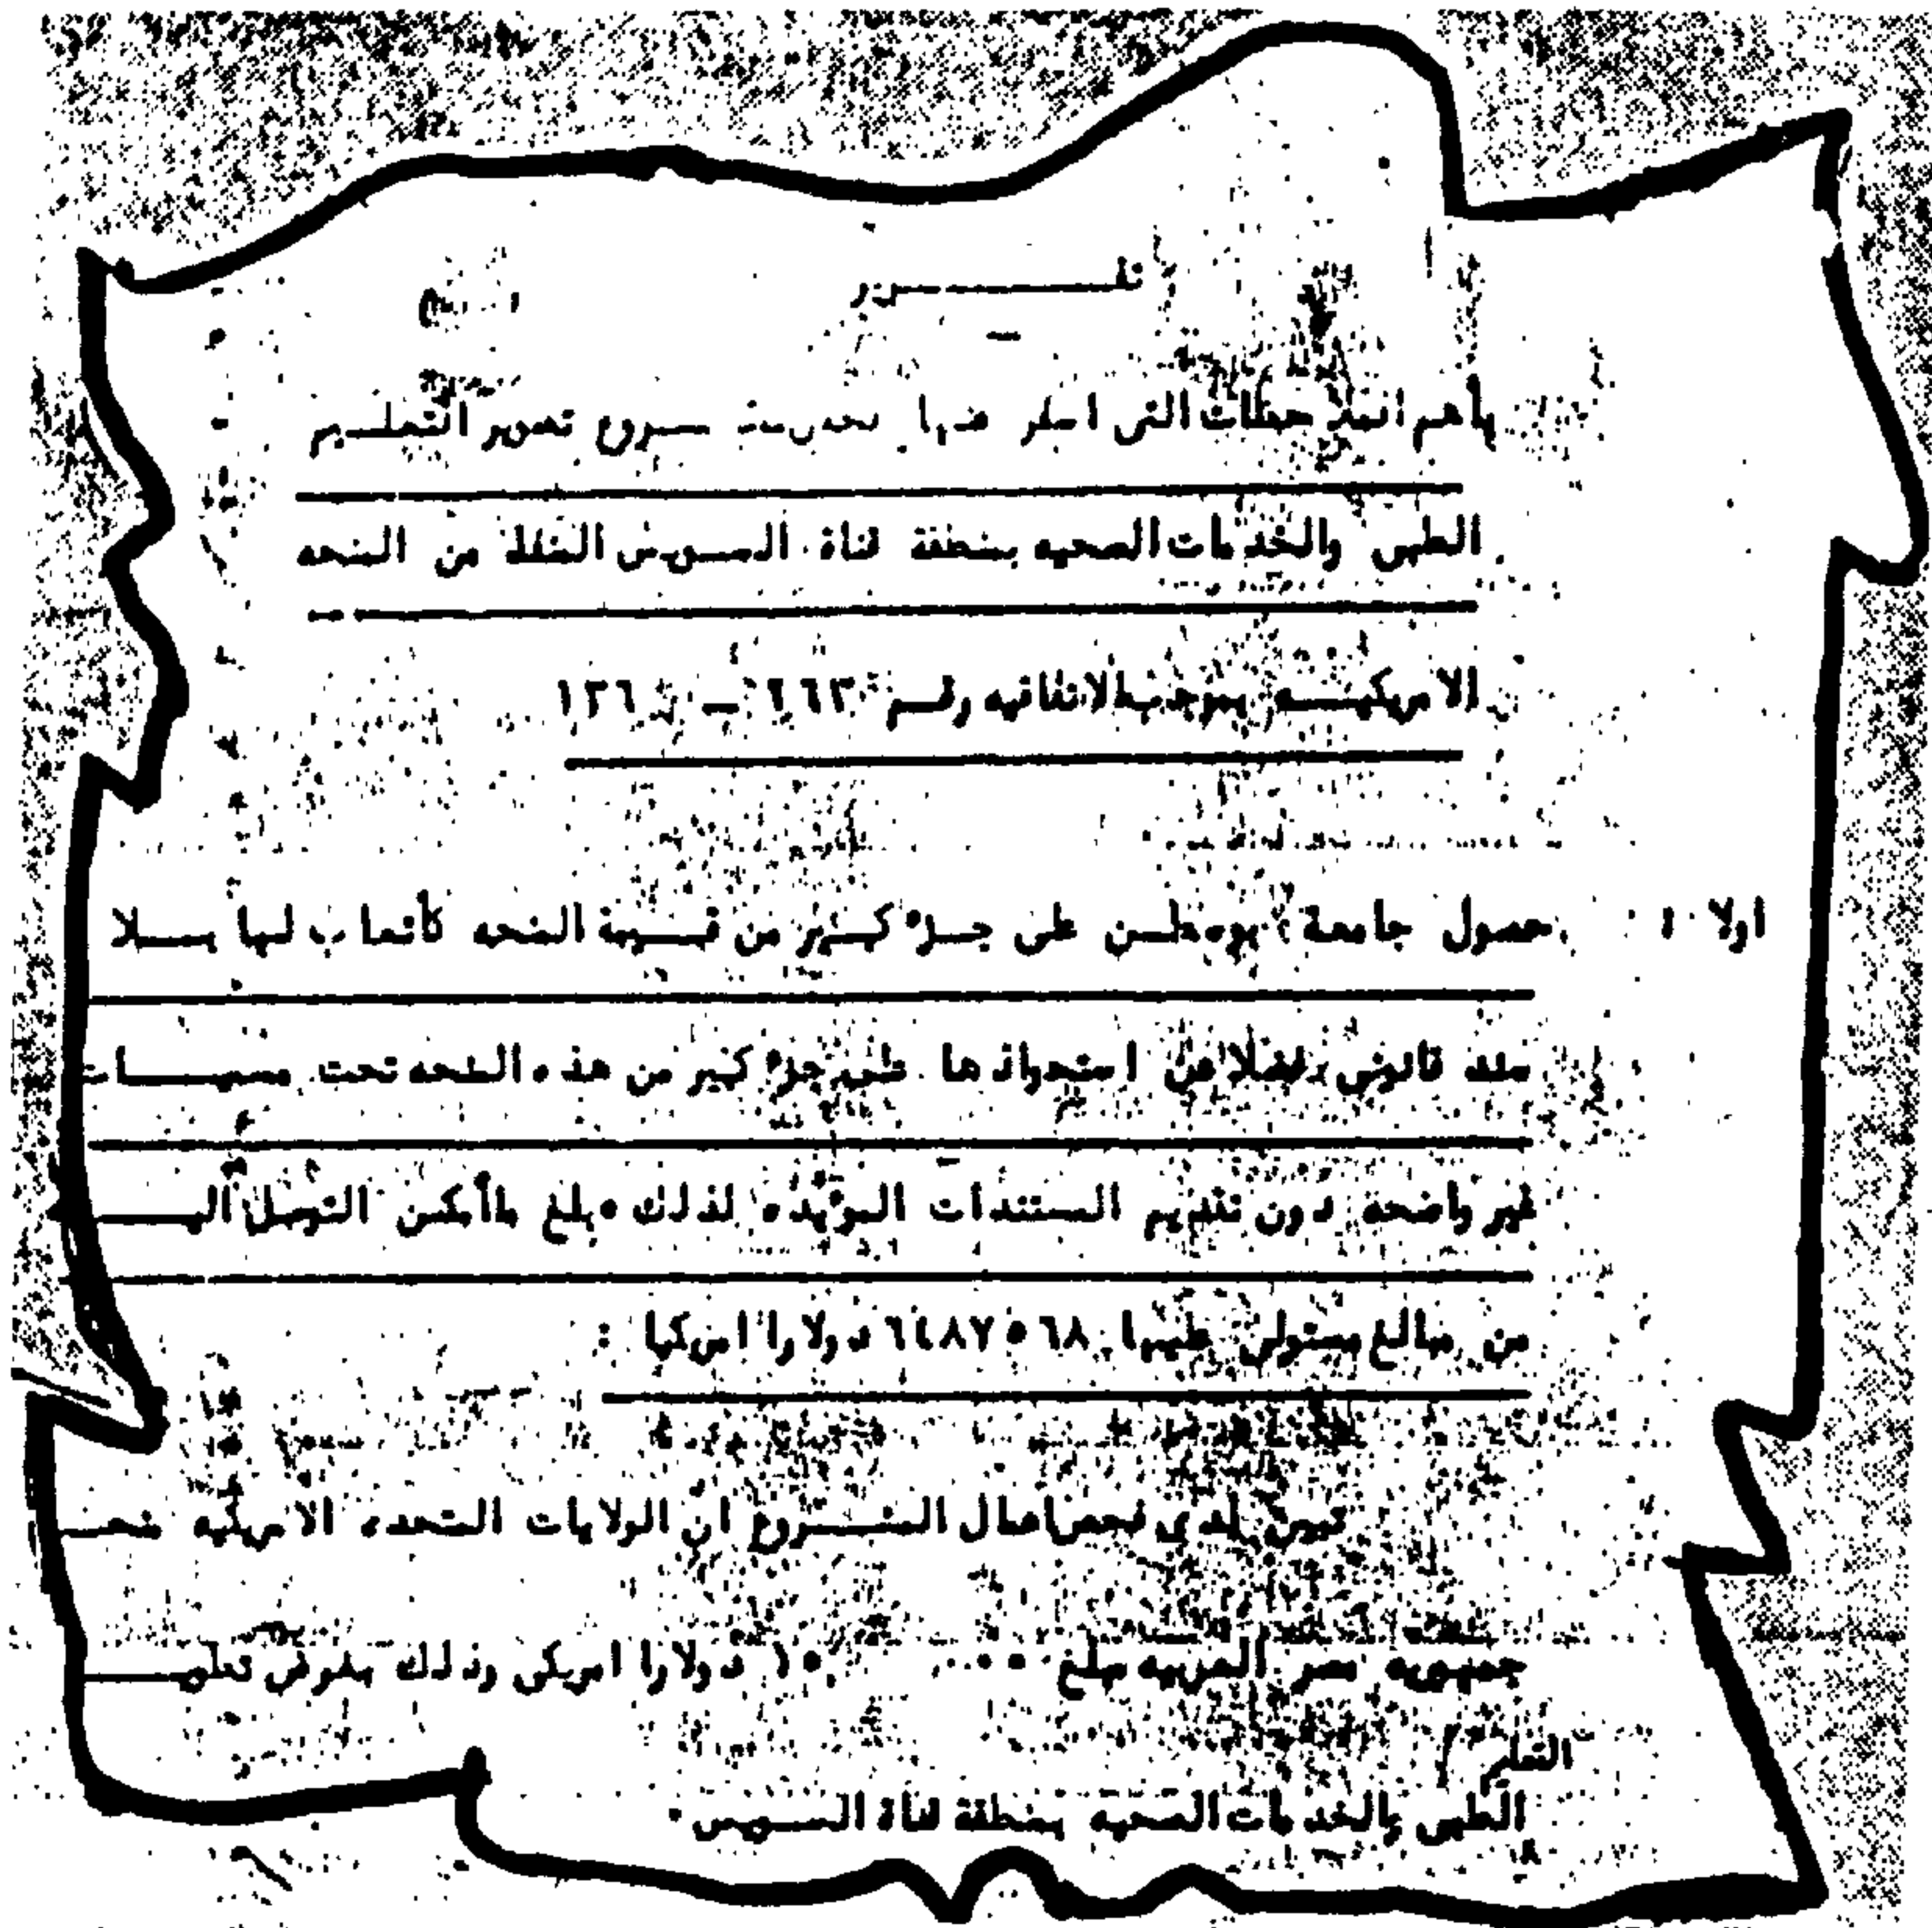 تقـــــــرير
بأهم الملاحظات التى اسفر عنها فحص تطوير التعلــيم
الطبى والخدمات الصحيه بمنطقة قناة الســويس المنفذ من المنحه
الامريكيــــه بموجب الاتفاقيه رقــم ٢٦٣ –
اولا : حصول جامعة بوسطــن على جــزء كبــير من قــيمة المنحه كأتعاب لها بــــلا
سند قانونى فضلا عن استحواذها على جزء كبير من هذه المنحه تحت مسميـــــات
غير واضحه دون تقديم المستندات المؤيده لذلك وبلغ ماأمكــن التوصل اليـــــ
من مبالغ مستولى عليها ٦٤٨٧٥٦٨ دولارا امريكيا :
تبين لدى فحص اعمال المشــــروع ان الولايات المتحده الامريكيه منحــــ
جمهوريه مصر العربيه مبلغ دولارا امريكى وذلك بغرض
التعليم
الطبى والخدمات الصحيه بمنطقة قناة الســويس .